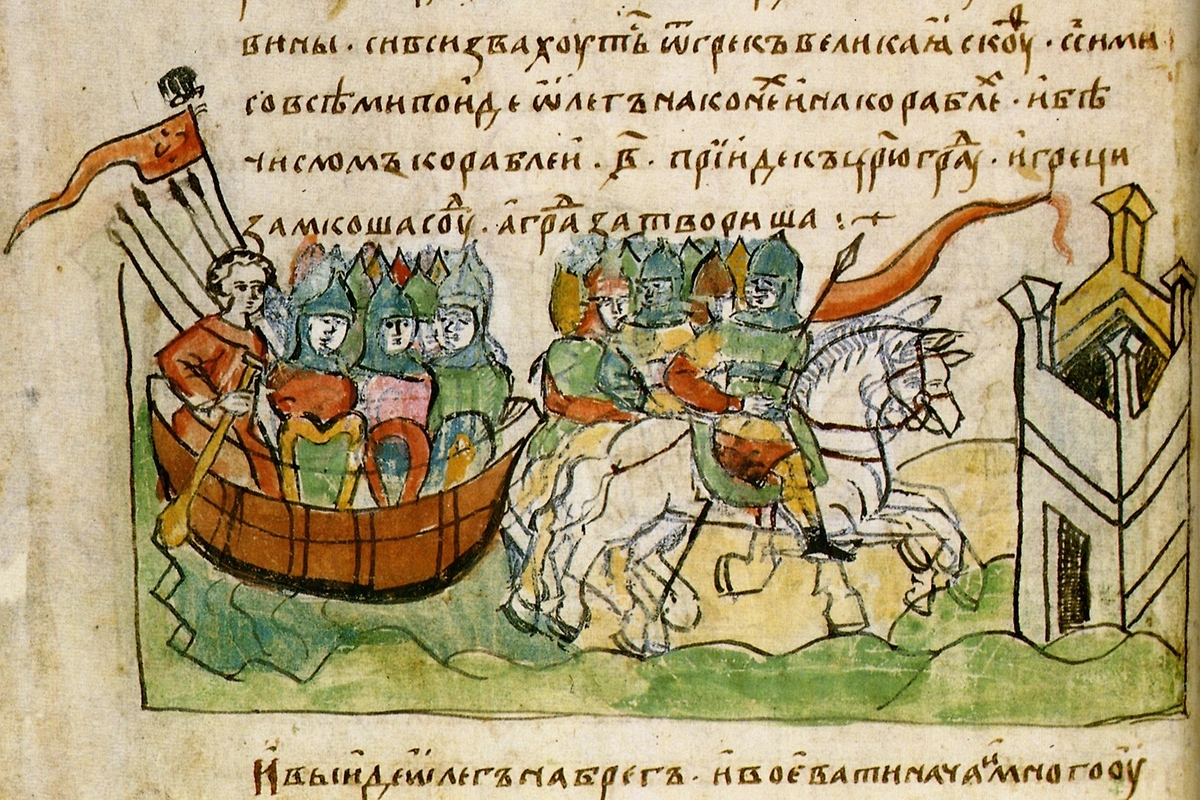 вины · си вси звахоуть ѿ грекъ великаꙗ скоуⷴ · с сими
со всѣми поиде ѡлегъ на конеⷯ и на кораблеⷯ · и бѣ
числомъ кораблеи · в҃ · прїиде къ цр҃юграⷣу · и греци
замкоша соуⷣ · а граⷣ затвориша :·
И выиде ѡлегъ на брегъ · и воевати нача · и много оу